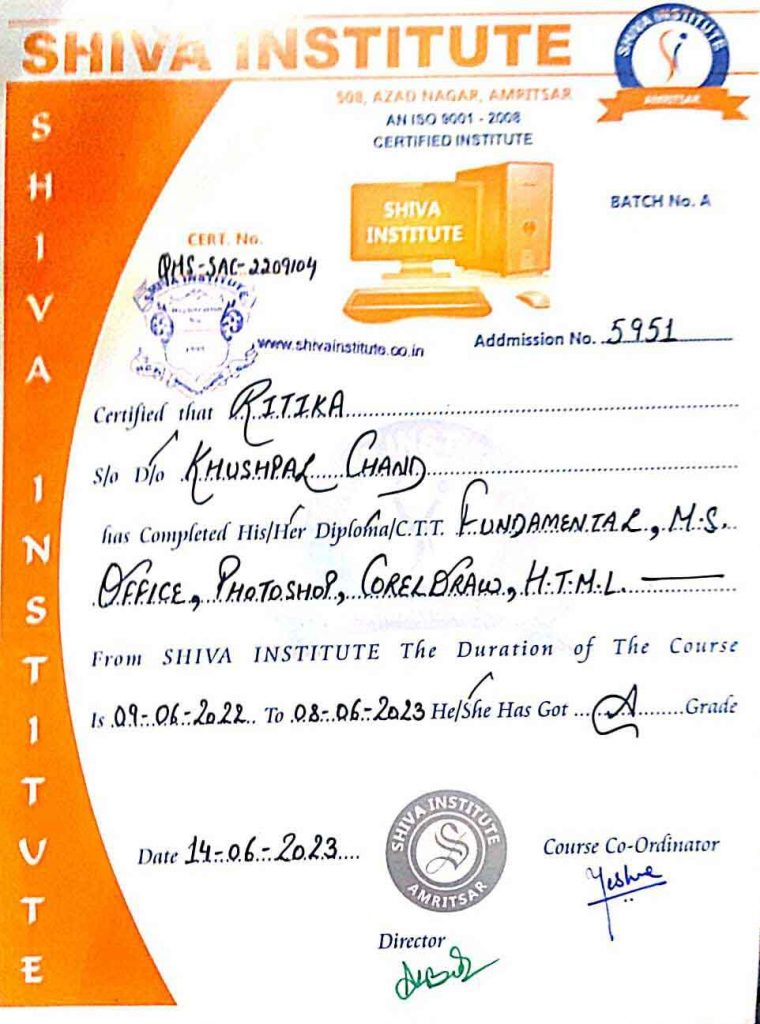 SHIVA INSTITUTE
SHIVA INSTITUTE
AMRITSAR
508, AZAD NAGAR, AMRITSAR
AN ISO 9001 - 2008
CERTIFIED INSTITUTE
SHIVA INSTITUTE
BATCH No. A
SHIVA
INSTITUTE
CERT. No.
QMS-SAC-2209104
SHIVA INSTITUTE
www.shivainstitute.co.in
Addmission No. 5951
Certified that RITIKA
S/o D/o KHUSHPAL CHAND
has Completed His/Her Diploma/C.T.T. FUNDAMENTAL, M.S.
OFFICE, PHOTOSHOP, CORELDRAW, H.T.M.L.
From SHIVA INSTITUTE The Duration of The Course
Is 09-06-2022 To 08-06-2023 He/She Has Got A Grade
Date 14-06-2023
SHIVA INSTITUTE
AMRITSAR
Course Co-Ordinator
Director